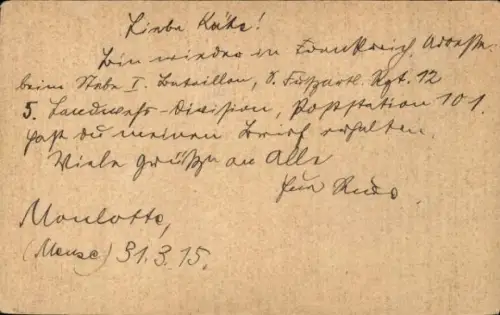 Liebe Käthe!
bin wieder in Frankreich. Adresse
beim Stabe I. Bataillon, 8. Fußartl. Rgt. 12
5. Landwehr-Division, Poststation 101.
hast du meinen Brief erhalten.
Viele Grüße an Alle
Moulotte,
(Meuse) 31.3.15.